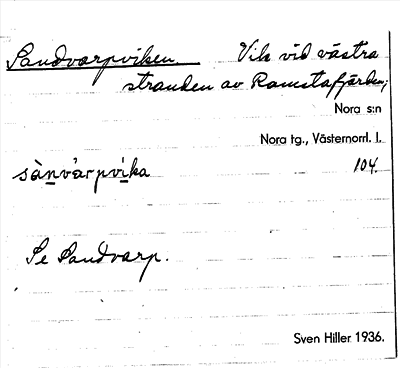 Sandvarpviken. Vik vid västra
stranden av Ramstafjärden;
Nora s:n
Nora tg., Västernorrl. l.
sànvàrpvika 104.
Se Sandvarp.
Sven Hiller 1936.